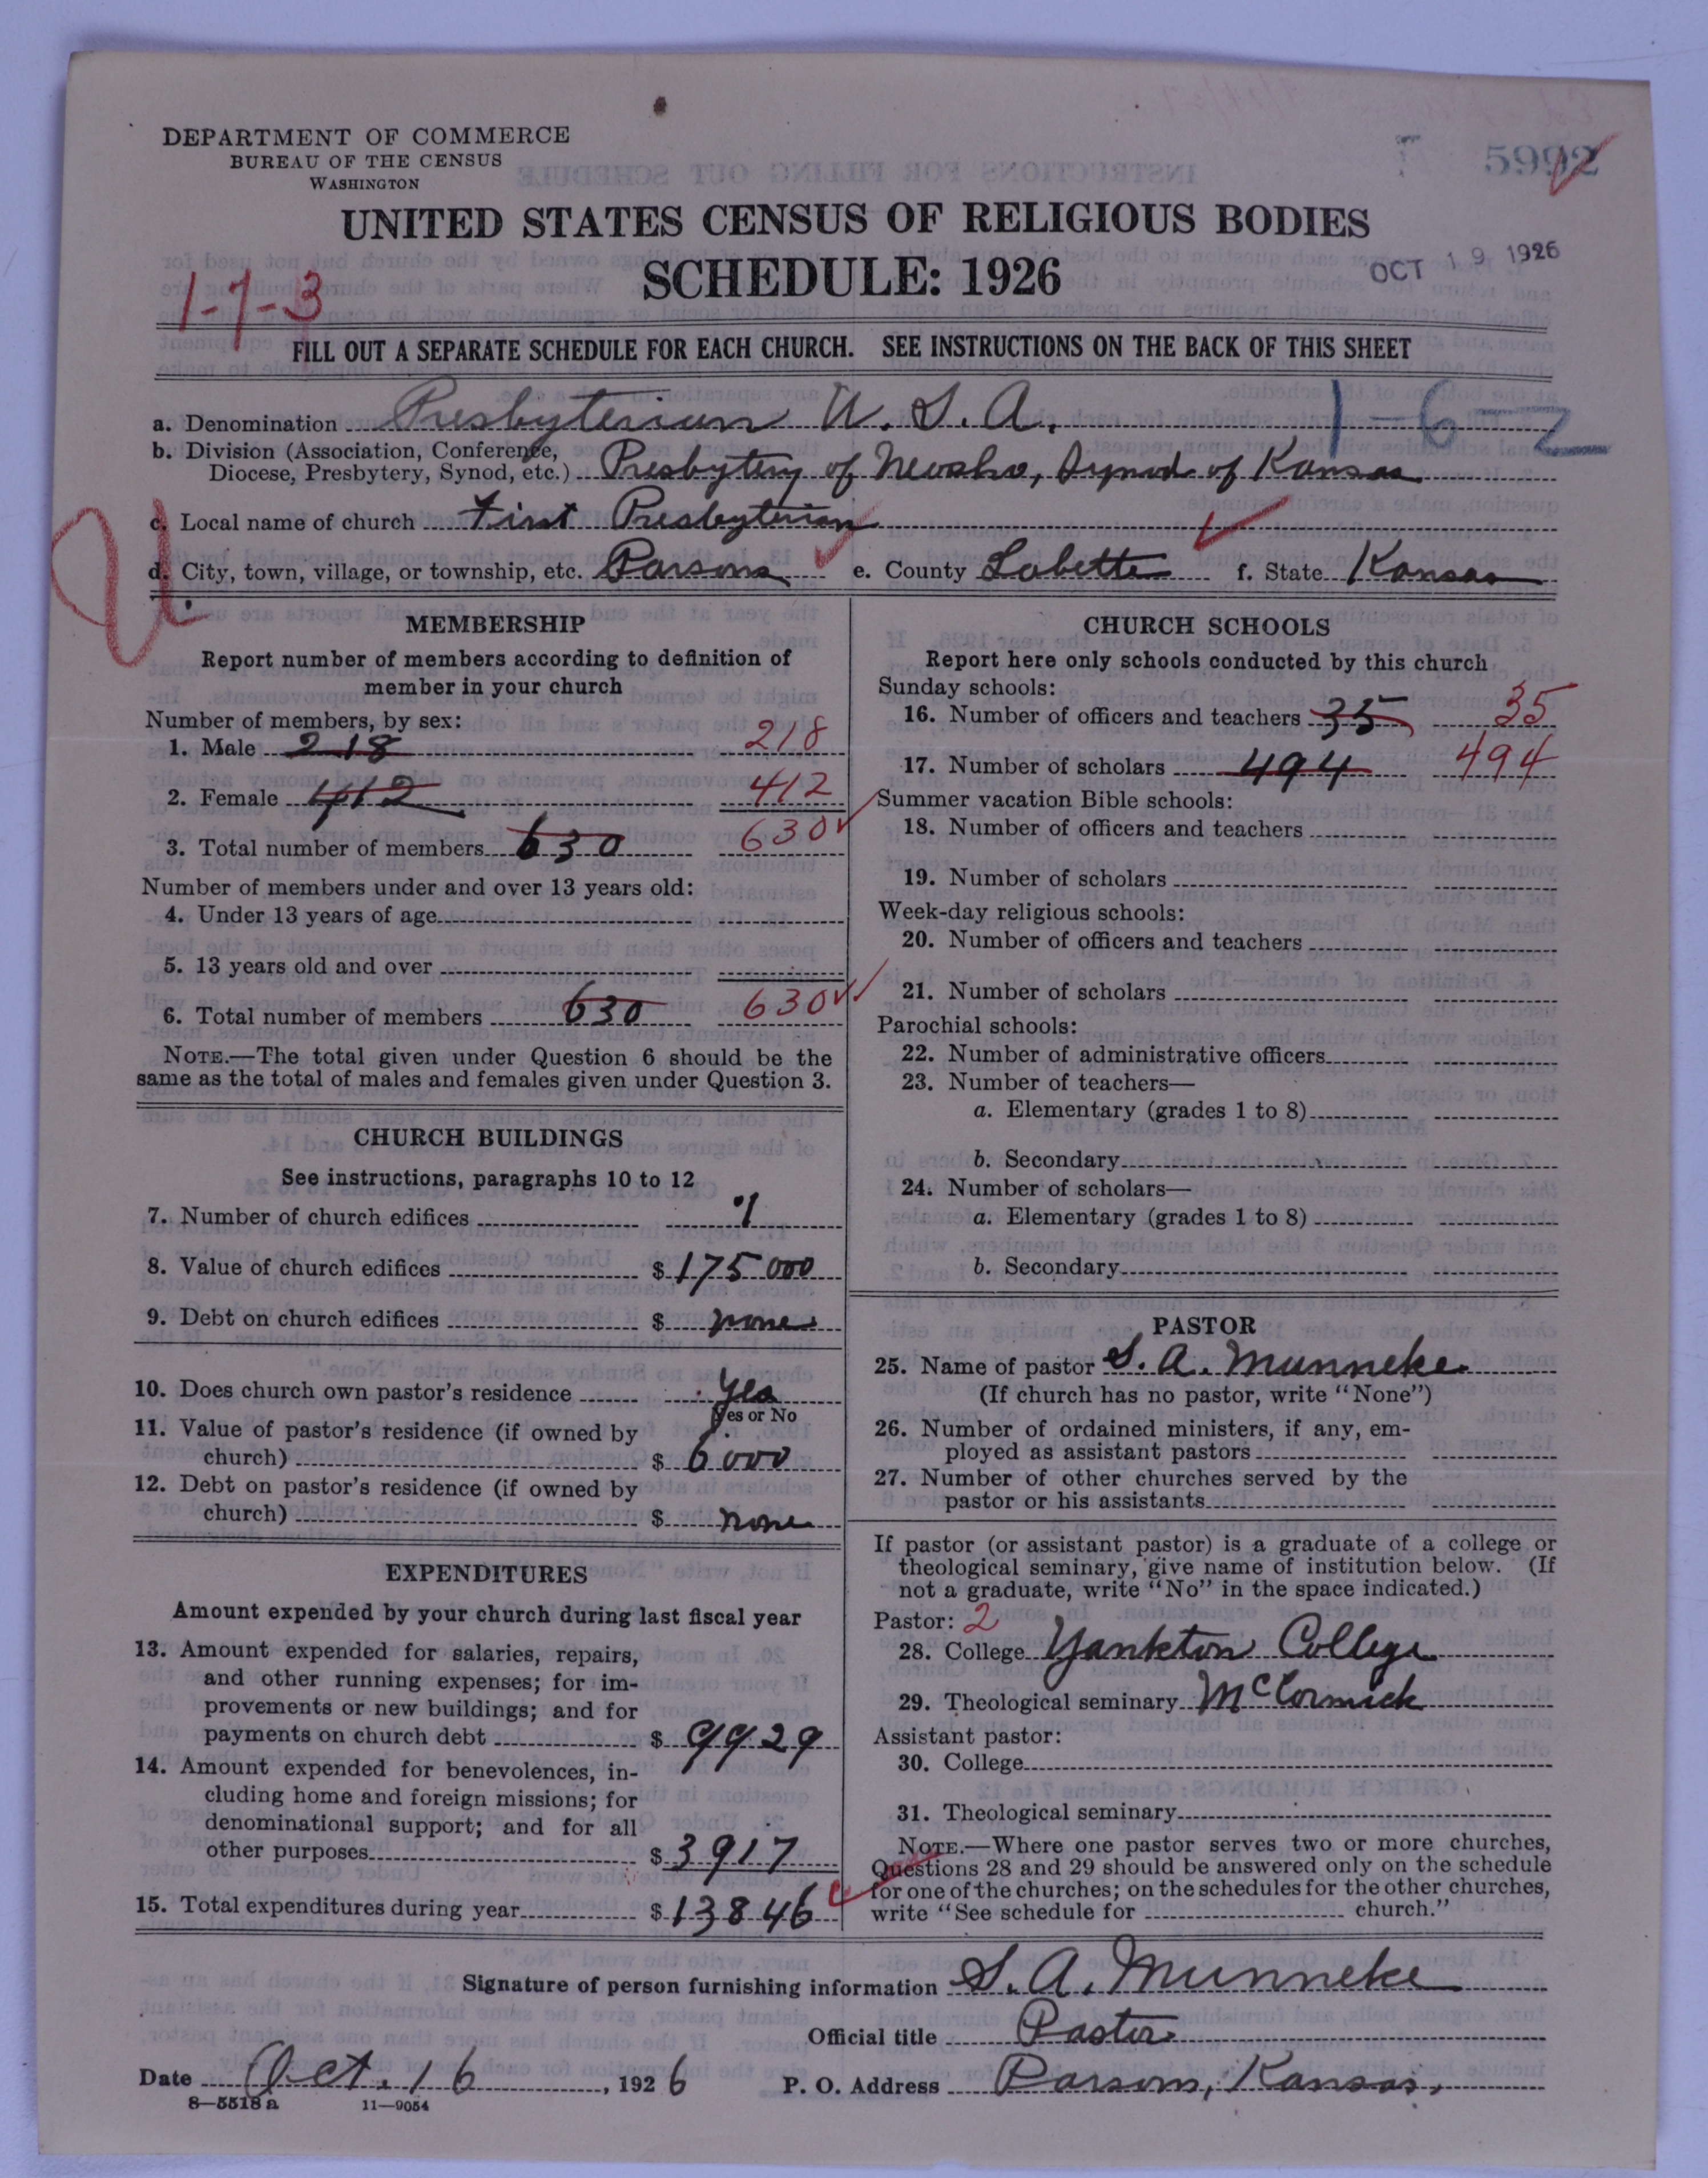 DEPARTMENT OF COMMERCE
BUREAU OF THE CENSUS
WASHINGTON
5992
UNITED STATES CENSUS OF RELIGIOUS BODIES
SCHEDULE: 1926
OCT 19 1926
1-7-3
FILL OUT A SEPARATE SCHEDULE FOR EACH CHURCH. SEE INSTRUCTIONS ON THE BACK OF THIS SHEET
1-6-2
a. Denomination Presbyterian U. S. A.
b. Division (Association, Conference, Diocese, Presbytery, Synod, etc.) Presbytery of Neosho, Synod of Kansas
c. Local name of church First Presbyterian
d. City, town, village, or township, etc. Parsons e. County Labette f. State Kansas
MEMBERSHIP
Report number of members according to definition of
member in your church
Number of members, by sex:
1. Male 218 218
2. Female 412 412
3. Total number of members 630 630
Number of members under and over 13 years old:
4. Under 13 years of age
5. 13 years old and over
6. Total number of members 630 630
NOTE.—The total given under Question 6 should be the
same as the total of males and females given under Question 3.
CHURCH BUILDINGS
See instructions, paragraphs 10 to 12
7. Number of church edifices 1
8. Value of church edifices $ 175000
9. Debt on church edifices $ none
10. Does church own pastor's residence Yes
Yes or No
11. Value of pastor's residence (if owned by
church) $ 6000
12. Debt on pastor's residence (if owned by
church) $ none
EXPENDITURES
Amount expended by your church during last fiscal year
13. Amount expended for salaries, repairs,
and other running expenses; for im-
provements or new buildings; and for
payments on church debt $ 9929
14. Amount expended for benevolences, in-
cluding home and foreign missions; for
denominational support; and for all
other purposes $ 3917
15. Total expenditures during year $ 13846
CHURCH SCHOOLS
Report here only schools conducted by this church
Sunday schools:
16. Number of officers and teachers 35 35
17. Number of scholars 494 494
Summer vacation Bible schools:
18. Number of officers and teachers
19. Number of scholars
Week-day religious schools:
20. Number of officers and teachers
21. Number of scholars
Parochial schools:
22. Number of administrative officers
23. Number of teachers—
a. Elementary (grades 1 to 8)
b. Secondary
24. Number of scholars—
a. Elementary (grades 1 to 8)
b. Secondary
PASTOR
25. Name of pastor S. A. Munneke
(If church has no pastor, write "None")
26. Number of ordained ministers, if any, em-
ployed as assistant pastors
27. Number of other churches served by the
pastor or his assistants
If pastor (or assistant pastor) is a graduate of a college or
theological seminary, give name of institution below. (If
not a graduate, write "No" in the space indicated.)
Pastor: 2
28. College Yankton College
29. Theological seminary McCormick
Assistant pastor:
30. College
31. Theological seminary
NOTE.—Where one pastor serves two or more churches,
Questions 28 and 29 should be answered only on the schedule
for one of the churches; on the schedules for the other churches,
write "See schedule for church."
Signature of person furnishing information S. A. Munneke
Official title Pastor
Date Oct. 16, 1926 P. O. Address Parsons, Kansas.
8—5518 a 11—9054